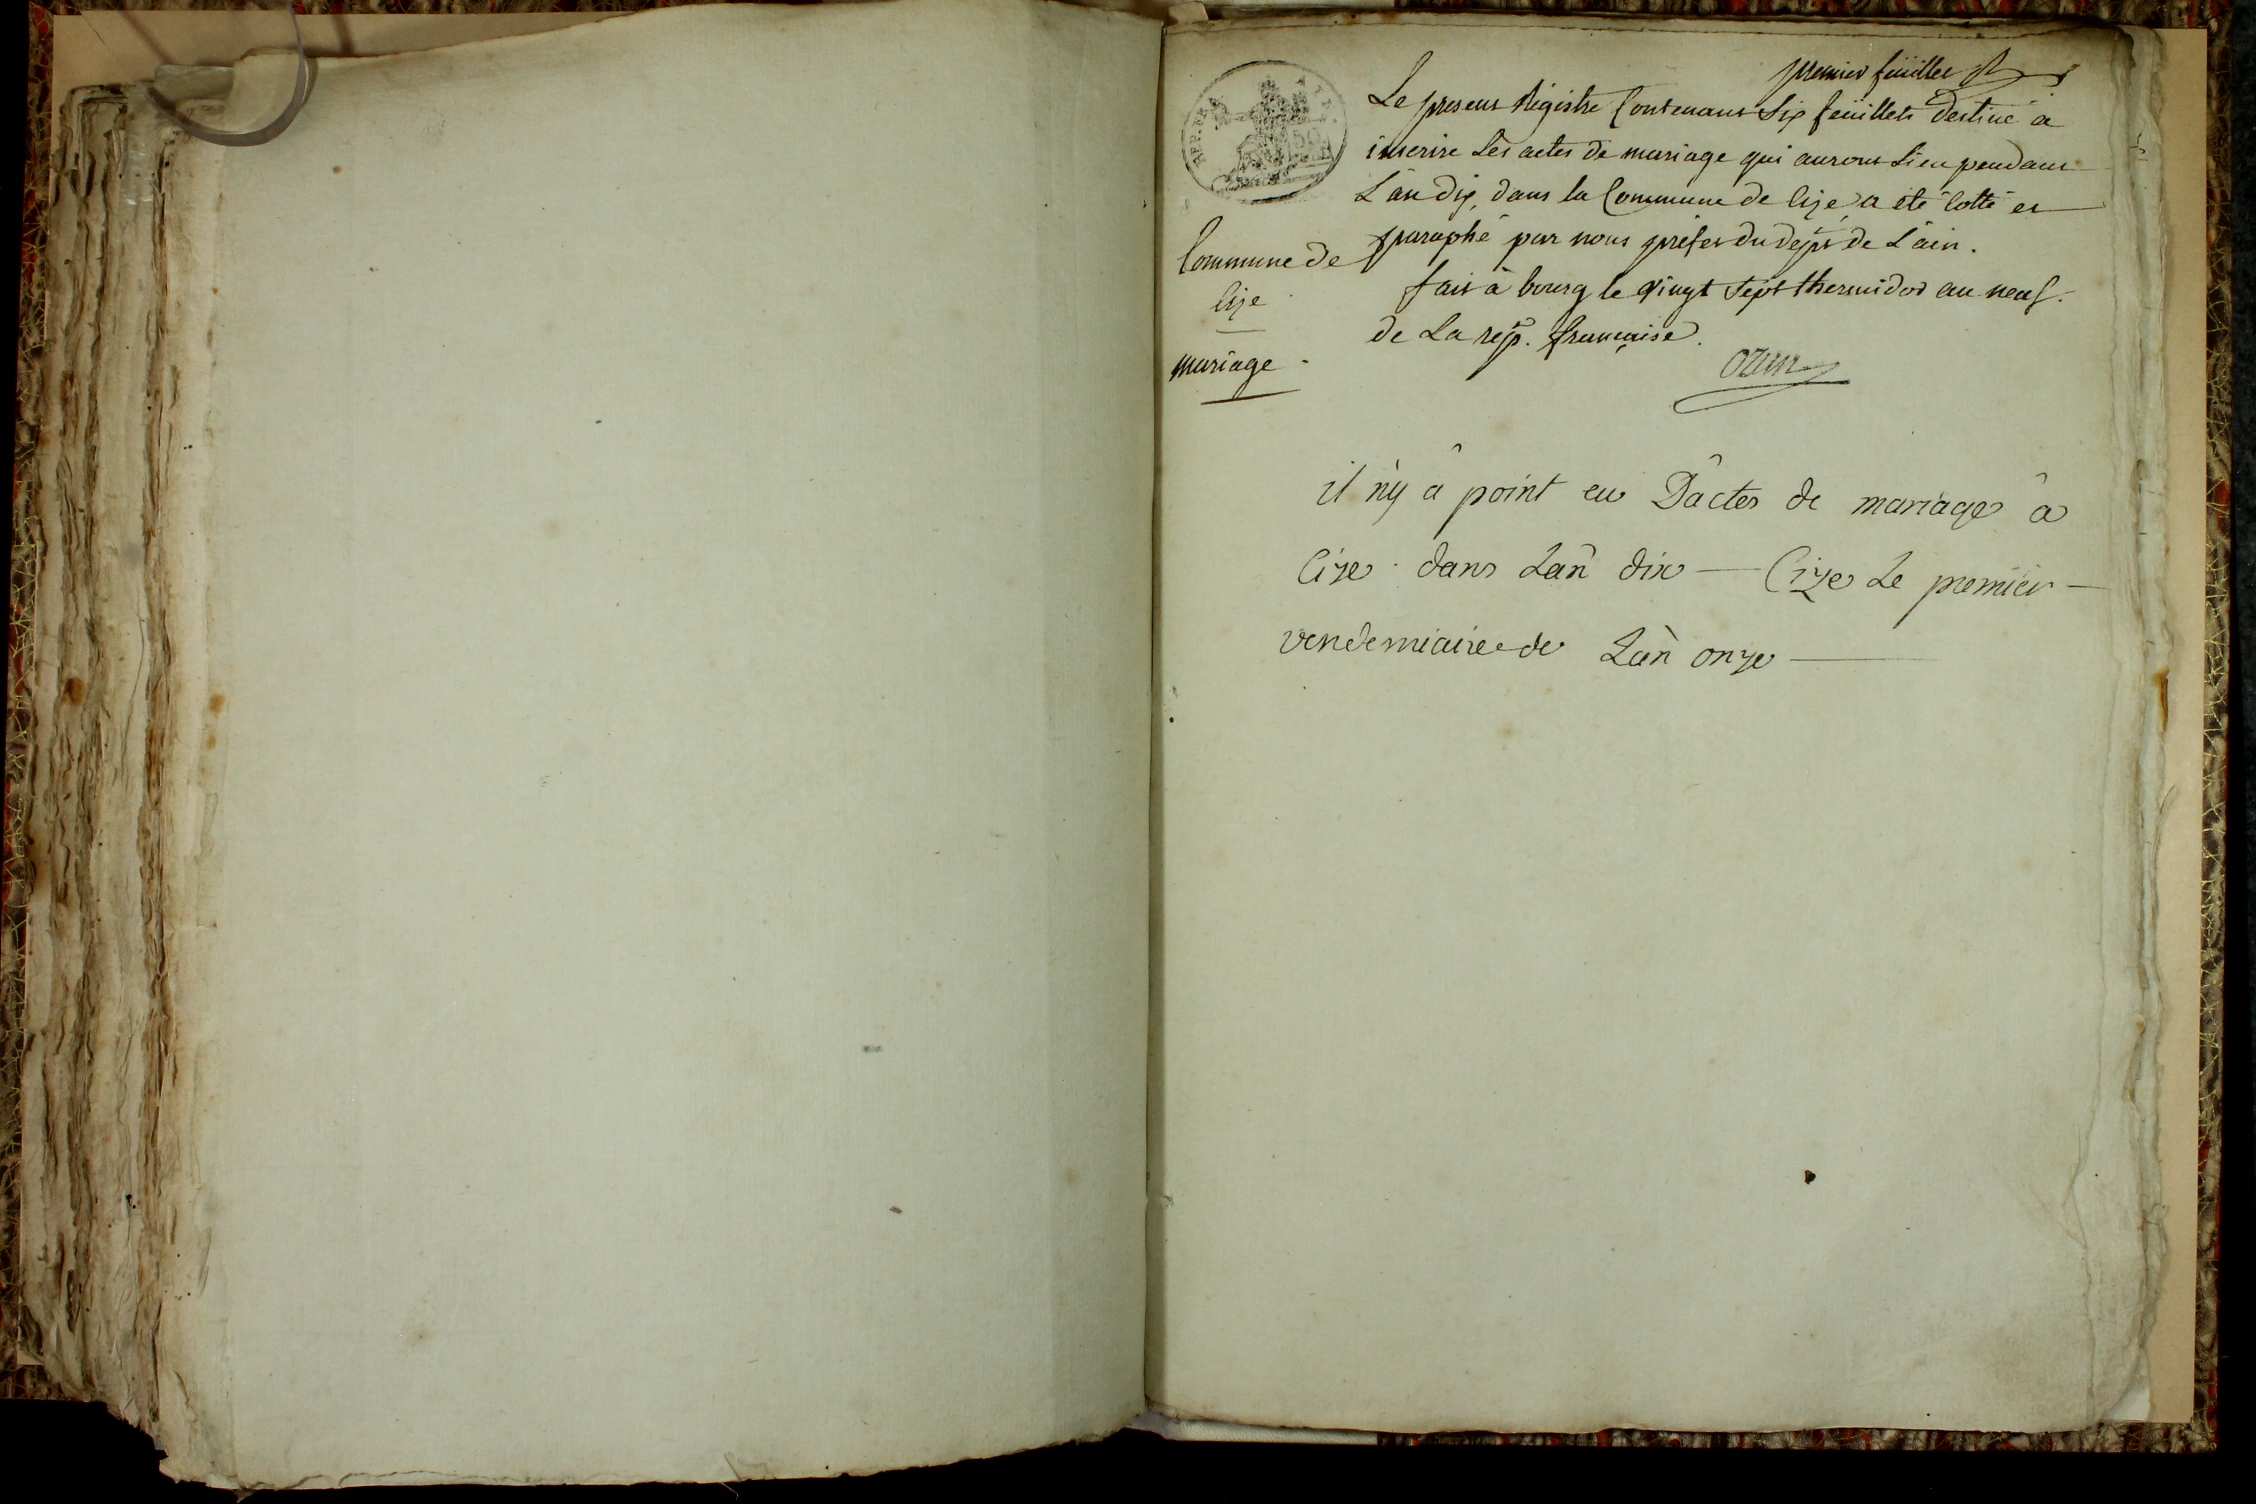 premier feüillet
Le present Régistre Contenant Six feüillets destiné à
inscrire Les actes de mariage qui auront Lieu pendant
L'an dix, dans la Commune de Cize, a été Cotté et
paraphé par nous préfet du dept de L'ain.
fait à bourg le vingt Sept thermidor an neuf.
de La rép. française.
Commune de
Cize
mariage
Ozun
il n'y â point eu D'actes de mariage â
Cize dans L'an dix — Cize Le premier —
vendemiaire de L'an onze —